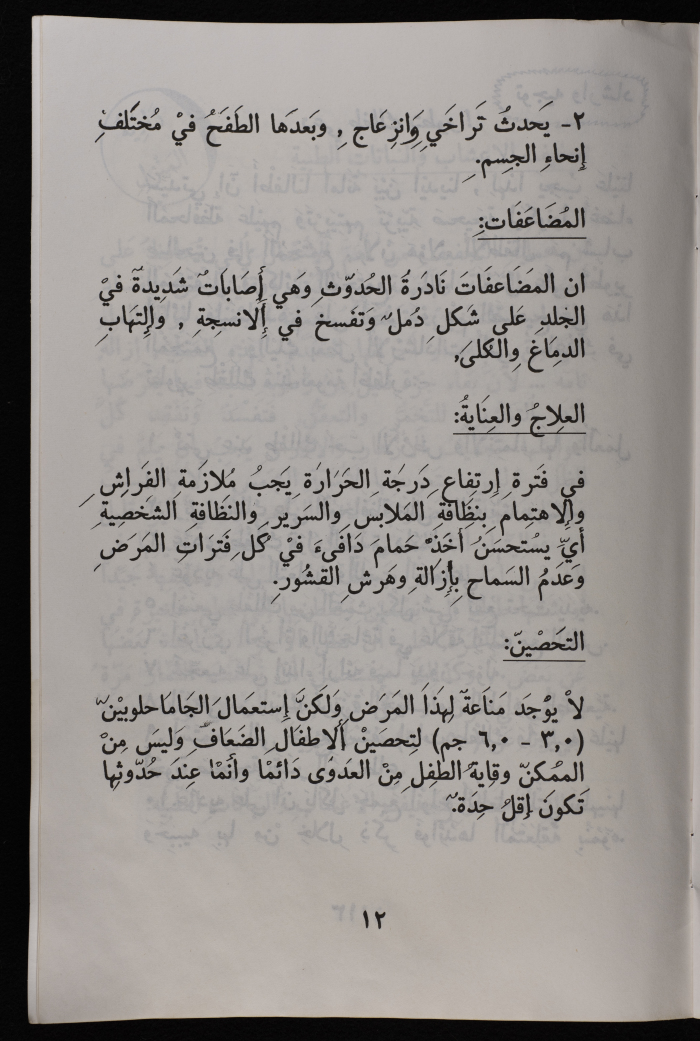 ٢- يَحدثُ تَراخَي وَانزعَاج , وبَعدَها الطَفَحُ فيْ مُختَلفِ
إنحاءِ الجسِم.
المُضَاعَفَات:
ان المضَاعفَاتَ نَادرَةُ الحُدوّث وَهي أصَابَاتٌ شَديدةٌ فيْ
الجْلدِ عَلى شَكلِ دُملٌ وَتفَسخْ في إلَانسجِةِ , والِتهَابِ
الدمِاغِ والكلىَ,
العِلاجُ والعِنَايةُ:
في فَترة إرتفاعِ دَرجَةِ الحَرَارَة يَجبُ مُلازمَةِ الفَراشِ
والِاهتمِام بنظَافَةِ المَلابس والسَرير والنظَافَةِ الشخَصيِةِ
أيِّ يستُحسَنُ أخَذِ حَمامَ دَافىءَ فيْ كُل فَترَاتِ المَرَضِ
وَعَدمُ السَماح بِأزَالَةِ وَهَرشِ القشُورِ.
التحَصْينّ:
لاْ يوُجَد مَنَاعَةٌ لهِذَا المَرَضِ وَلكَنَّ إستعمَالَ الجَامَاحلوبيْنّ
(٣,٠ - ٦,٠ جم) لتِحصَينَ إلَاطفَال الضَعَافٌ وَليسَ مِنْ
الممُكنّ وقايةُ الطفِل مِنْ العَدوَى دَائمْا وأنَمْا عِندَ حُدّوثهِا
تَكونَ إقلُ حدَة.
١٢